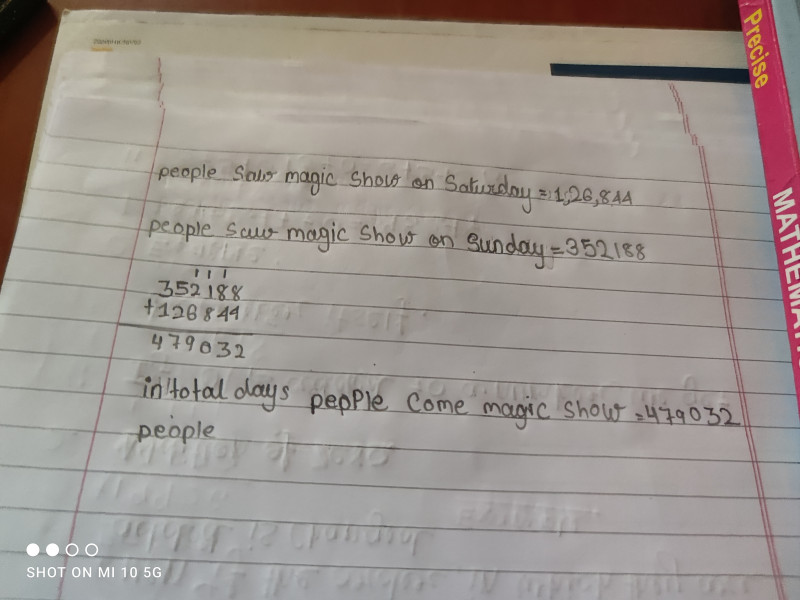 people saw magic show on Saturday = 1,26,844
people saw magic show on Sunday = 352188
1 1 1
352188
+126844
479032
in total days pepple come magic show = 479032
people
Precise
MATHEMAT
SHOT ON MI 10 5G